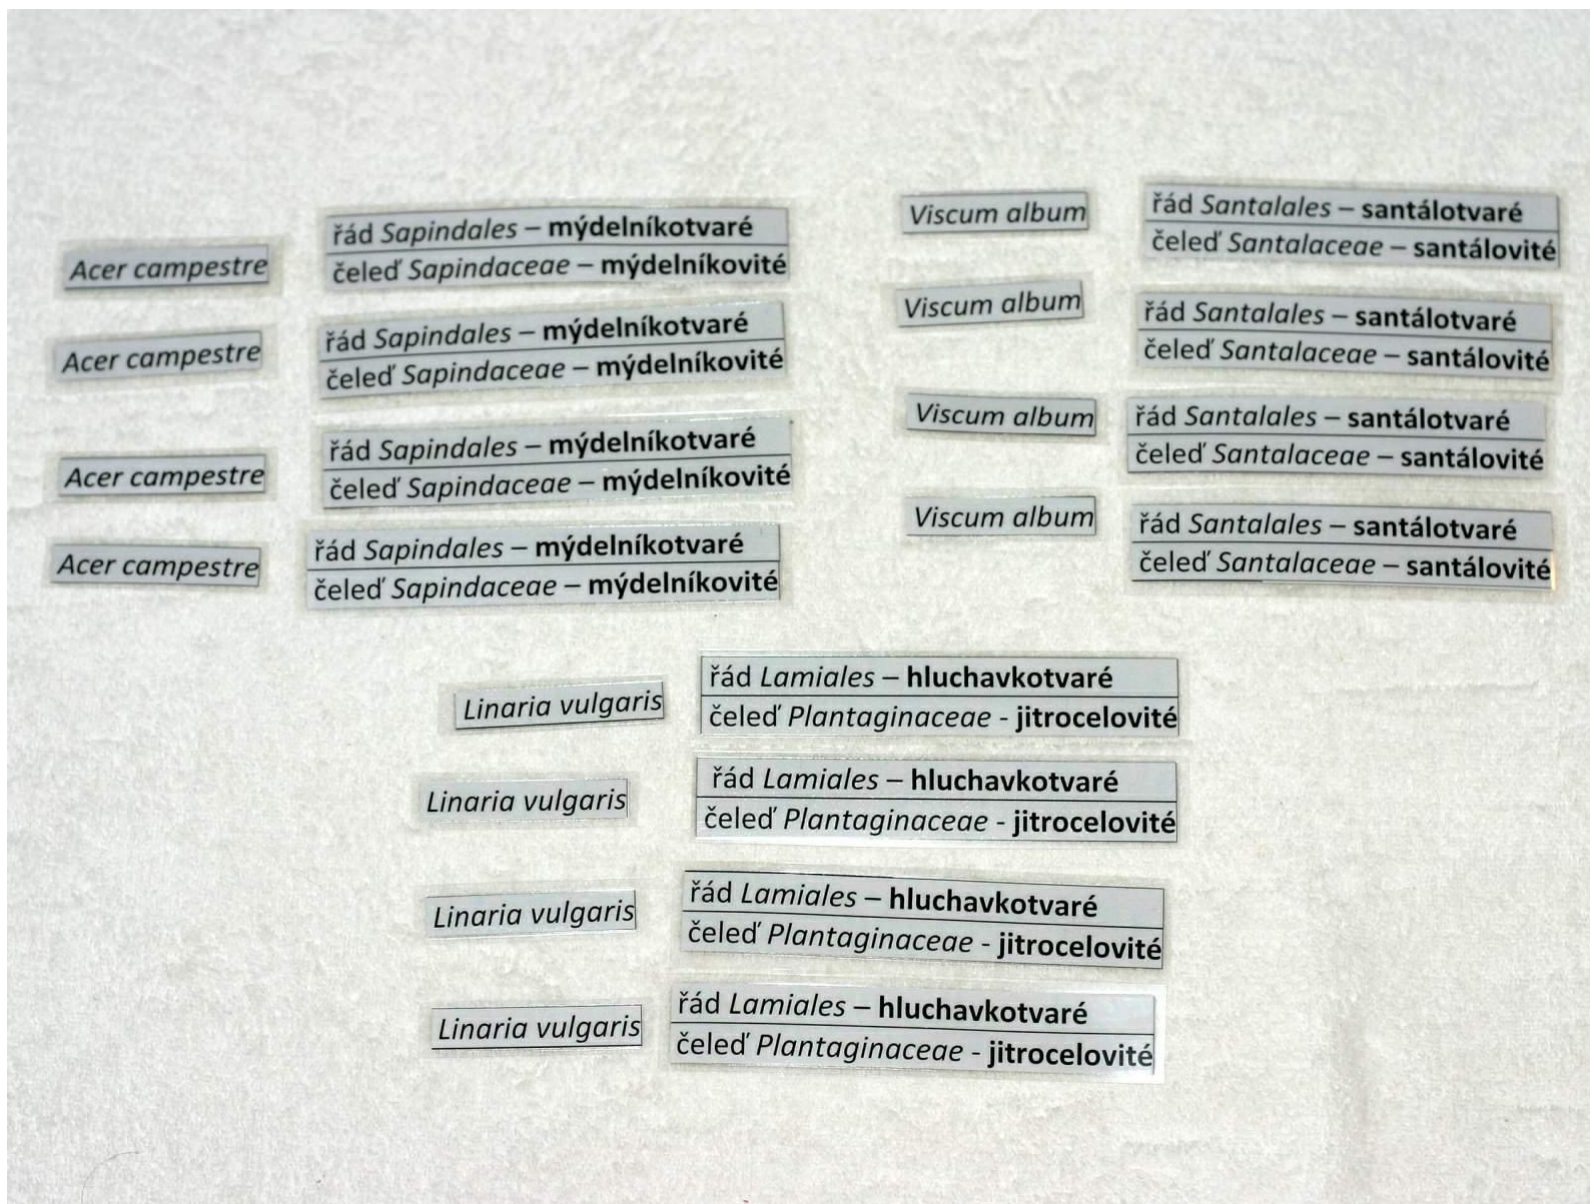 Acer campestre
řád Sapindales – mýdelníkotvaré
čeleď Sapindaceae – mýdelníkovité
Acer campestre
řád Sapindales – mýdelníkotvaré
čeleď Sapindaceae – mýdelníkovité
Acer campestre
řád Sapindales – mýdelníkotvaré
čeleď Sapindaceae – mýdelníkovité
Acer campestre
řád Sapindales – mýdelníkotvaré
čeleď Sapindaceae – mýdelníkovité
Viscum album
řád Santalales – santálotvaré
čeleď Santalaceae – santálovité
Viscum album
řád Santalales – santálotvaré
čeleď Santalaceae – santálovité
Viscum album
řád Santalales – santálotvaré
čeleď Santalaceae – santálovité
Viscum album
řád Santalales – santálotvaré
čeleď Santalaceae – santálovité
Linaria vulgaris
řád Lamiales – hluchavkotvaré
čeleď Plantaginaceae - jitrocelovité
Linaria vulgaris
řád Lamiales – hluchavkotvaré
čeleď Plantaginaceae - jitrocelovité
Linaria vulgaris
řád Lamiales – hluchavkotvaré
čeleď Plantaginaceae - jitrocelovité
Linaria vulgaris
řád Lamiales – hluchavkotvaré
čeleď Plantaginaceae - jitrocelovité